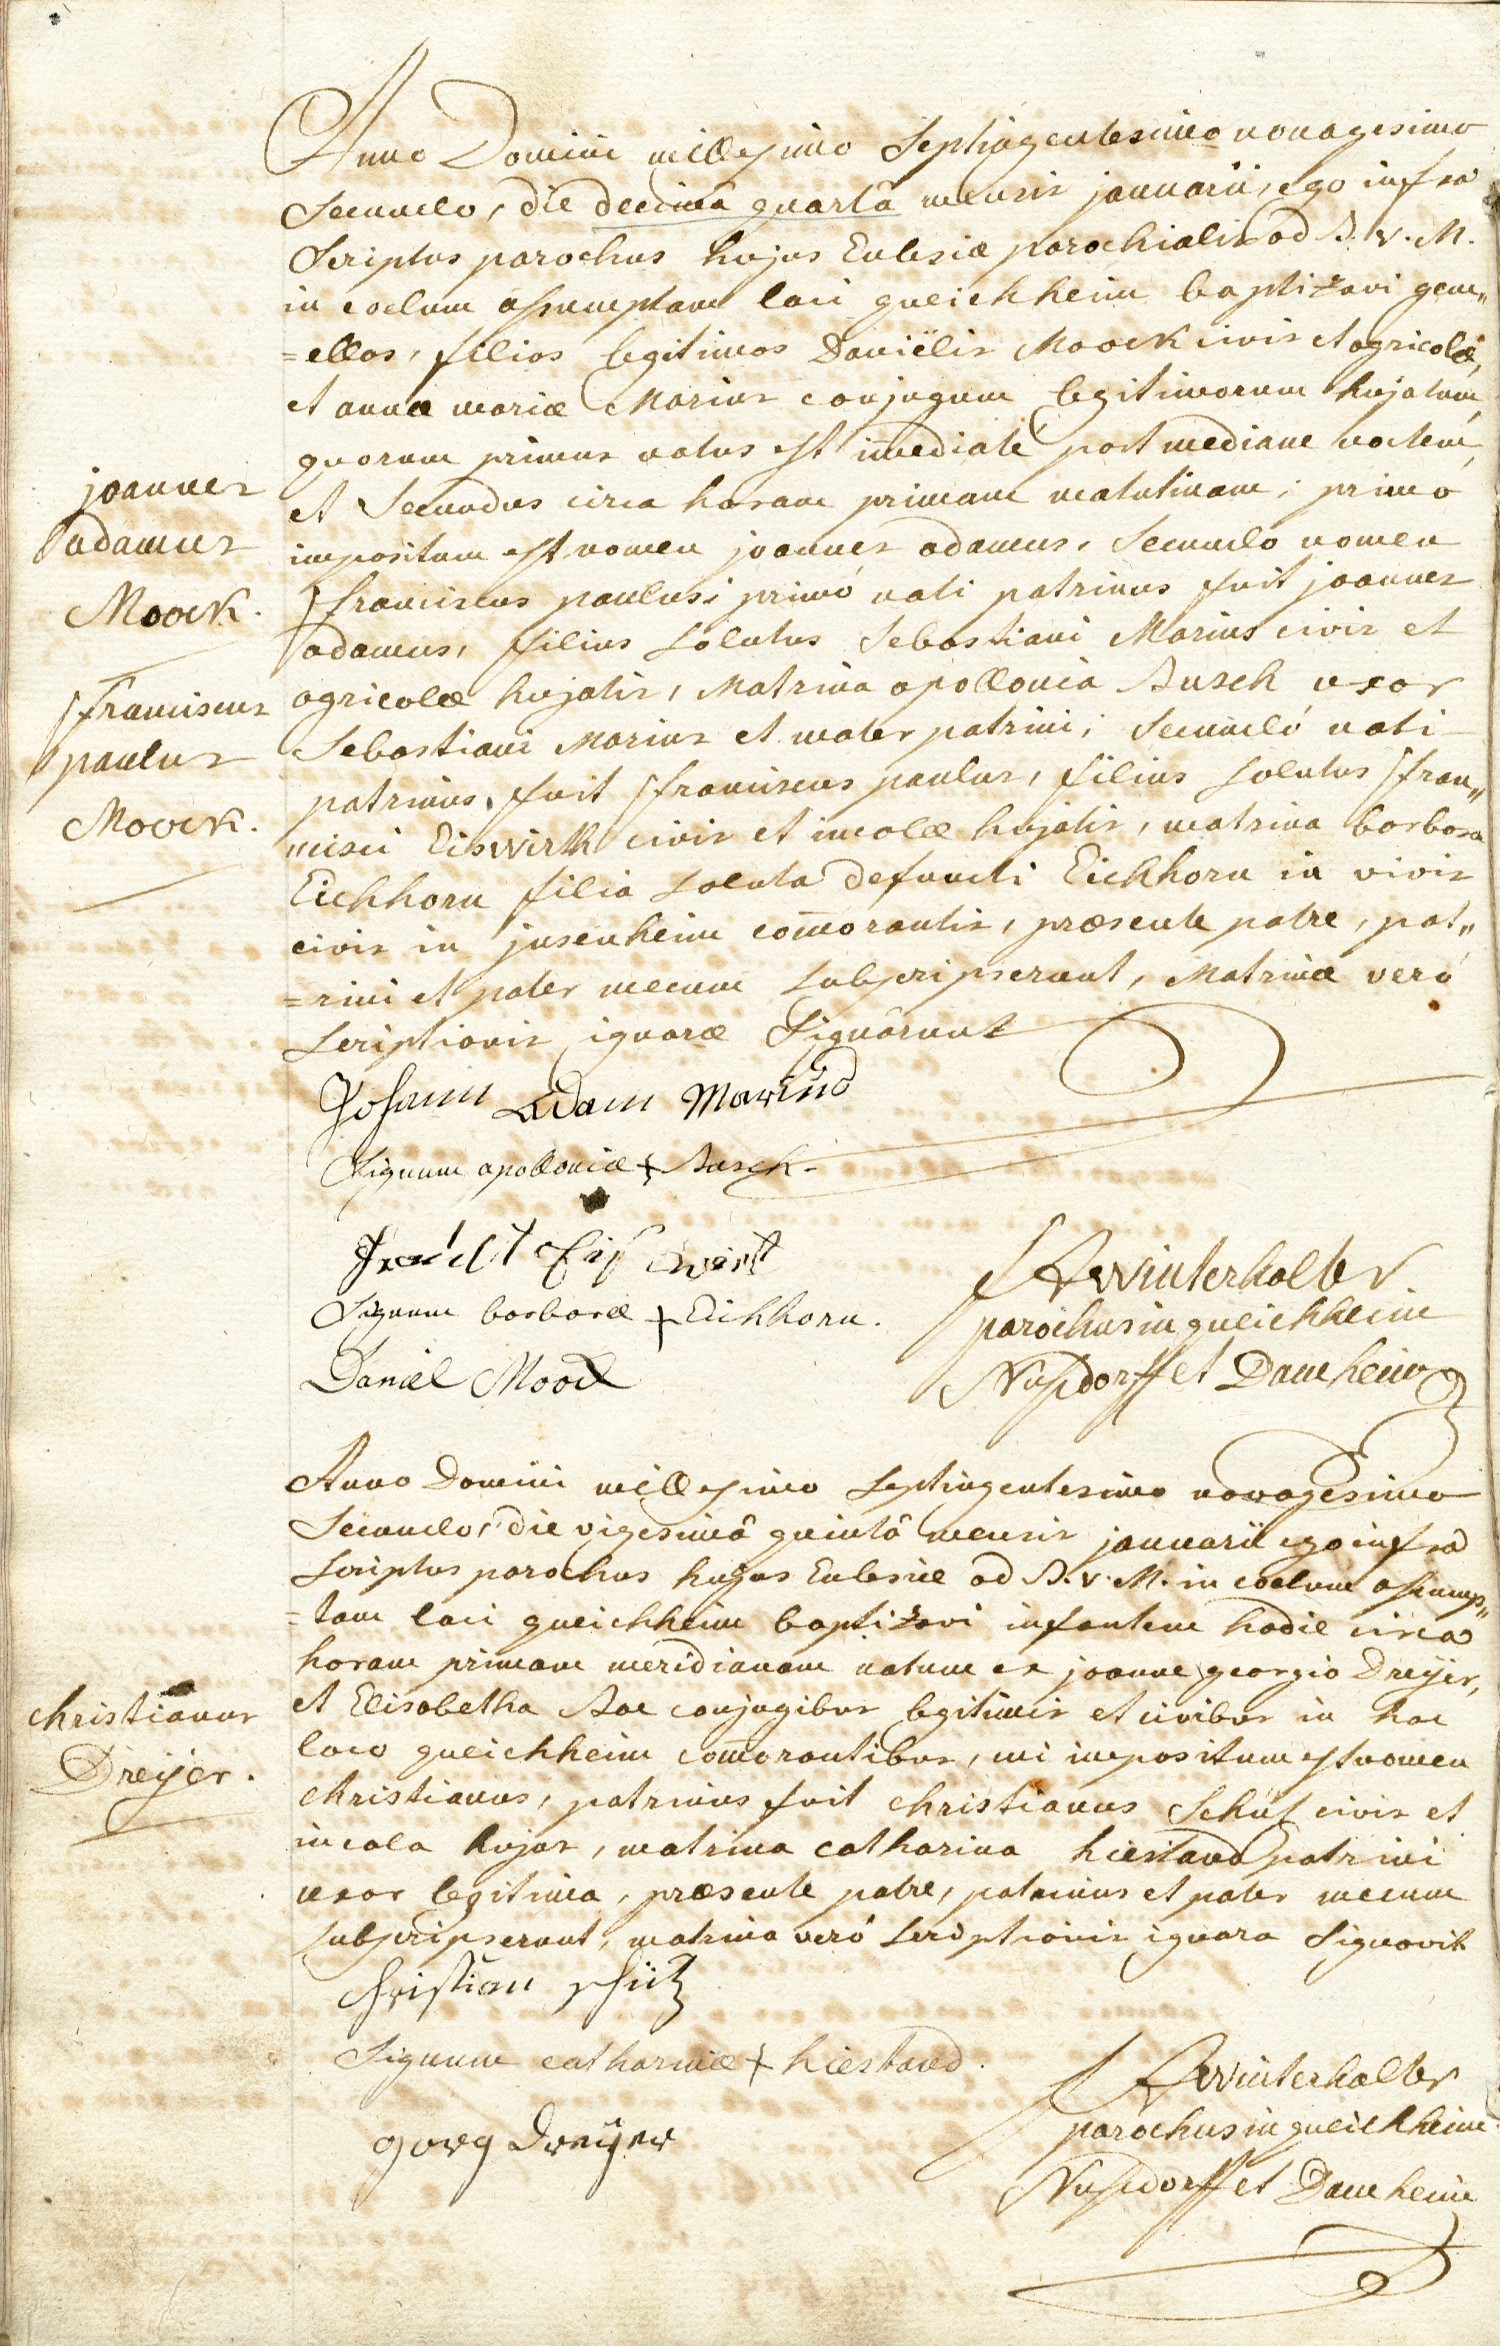 Anno Domini millesimo Septingentesimo nonagesimo
Secundo, die decimâ quartâ mensis januarii, ego infra
Scriptus parochus hujus Eclesiæ parochialis ad B. v. M.
in coelum assumptam loci queichheim baptizavi gem„
=ellos, filios legitimos Daniëlis Moock civis et agricolæ,
et annæ mariæ Marius conjugum legitimorum hujatum,
quorum primus natus est im̄ediaté post mediam noctem,
et Secundus circa horam primam matutinam; primo
impositum est nomen joannes adamus, Secundo nomen
franciscus paulus; primó nati patrinus fuit joannes
adamus, filius solutus Sebastiani Marius civis et
agricolæ hujatis, Matrina apollonia Busch uxor
Sebastiani Marius et mater patrini; Secundó nati
patrinus fuit franciscus paulus, filius solutus fran„
„cisci Eiswirth civis et incolæ hujatis, matrina barbara
Eichhorn filia soluta defuncti Eichhorn in vivis
civis in jusenheim com̄orantis, præsente patre, pat„
=rini et pater mecum subscripserunt, Matrinæ veró
scriptionis ignaræ Signârunt
joannes
adamus
Moock.
franciscus
paulus
Moock.
Johann Adam Marius
Signum apolloniæ + Busch.
Signum barbaræ + Eichhorn.
Daniel Moock
Winterhalter
parochus in queichheim
Nussdorff et Damheim
Anno Domini millesimo septingentesimo nonagesimo
Secundo, die vigesimâ quintâ mensis januarii ego infra
scriptus parochus hujus Eclesiæ ad B. v. M. in coelum assump„
=tam loci queichheim baptizavi infantem hodie circa
horam primam meridianam natum ex joanne georgio Dreÿer,
et Elisabetha Boe conjugibus legitimis et civibus in hoc
loco queichheim com̄orantibus, cui impositum est nomen
christianus, patrinus fuit christianus Schüz civis et
incola hujas, matrina catharina hiestand patrini
uxor legitima, præsente patre, patrinus et pater mecum
subscripserunt, matrina veró scriptionis ignara Signavit
christianus
Dreÿer.
Christian Schütz
Signum catharinæ + hiestand.
georg Dreÿer
Winterhalter
parochus in queichheim
Nussdorff et Damheim